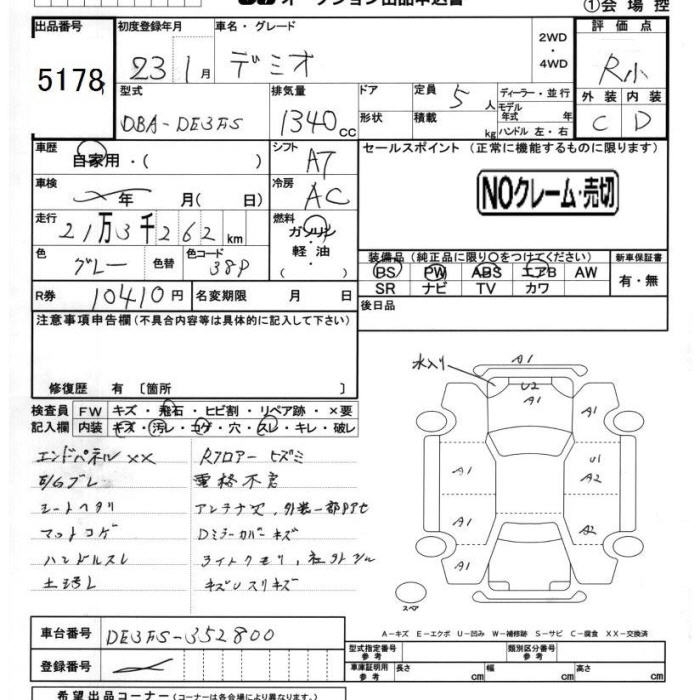 オークション出品申込書
①会場控
出品番号 初度登録年月 車名・グレード 評価点
5178 23 1月 デミオ 2WD・4WD R小
型式 排気量 ドア 定員 5人 ディーラー・並行 外装 内装
DBA-DE3FS 1340cc 形状 積載 kg モデル年式 年 ハンドル 左・右 C D
車歴 自家用・( ) シフト AT セールスポイント (正常に機能するものに限ります)
車検 年 月( 日) 冷房 AC NOクレーム・売切
走行 21万3千262km 燃料 ガソリン・軽油・( )
色 グレー 色替 色コード 38P
装備品 (純正品に限り○をつけてください) 新車保証書
BS PW ABS エアB AW 有・無
SR ナビ TV カワ
R券 10410円 名変期限 月 日 後日品
注意事項申告欄 (不具合内容等は具体的に記入して下さい)
修復歴 有 [箇所 ]
検査員記入欄 FW キズ・飛石・ヒビ割・リペア跡・×要
内装 キズ・汚レ・コゲ・穴・スレ・キレ・破レ
エンドパネルXX Rフロアー ヒズミ
E/Gブレ 電格不良
シートヘタリ アンテナ欠, 外装一部
マットコゲ Dミラーカバーキズ
ハンドルスレ ライトクモリ,
土汚レ キズ
水入り
A1
U2
A1 A1
A1 U1
A2
A1 A2
A1
スペア
A-キズ E-エクボ U-凹み W-補修跡 S-サビ C-腐食 XX-交換済
車台番号 DE3FS-352800
登録番号
型式指定番号 参考 類別区分番号 参考
車庫証明用 参考 長さ cm 幅 cm 高さ cm
希望出品コーナー (コーナーは各会場により異なります。)